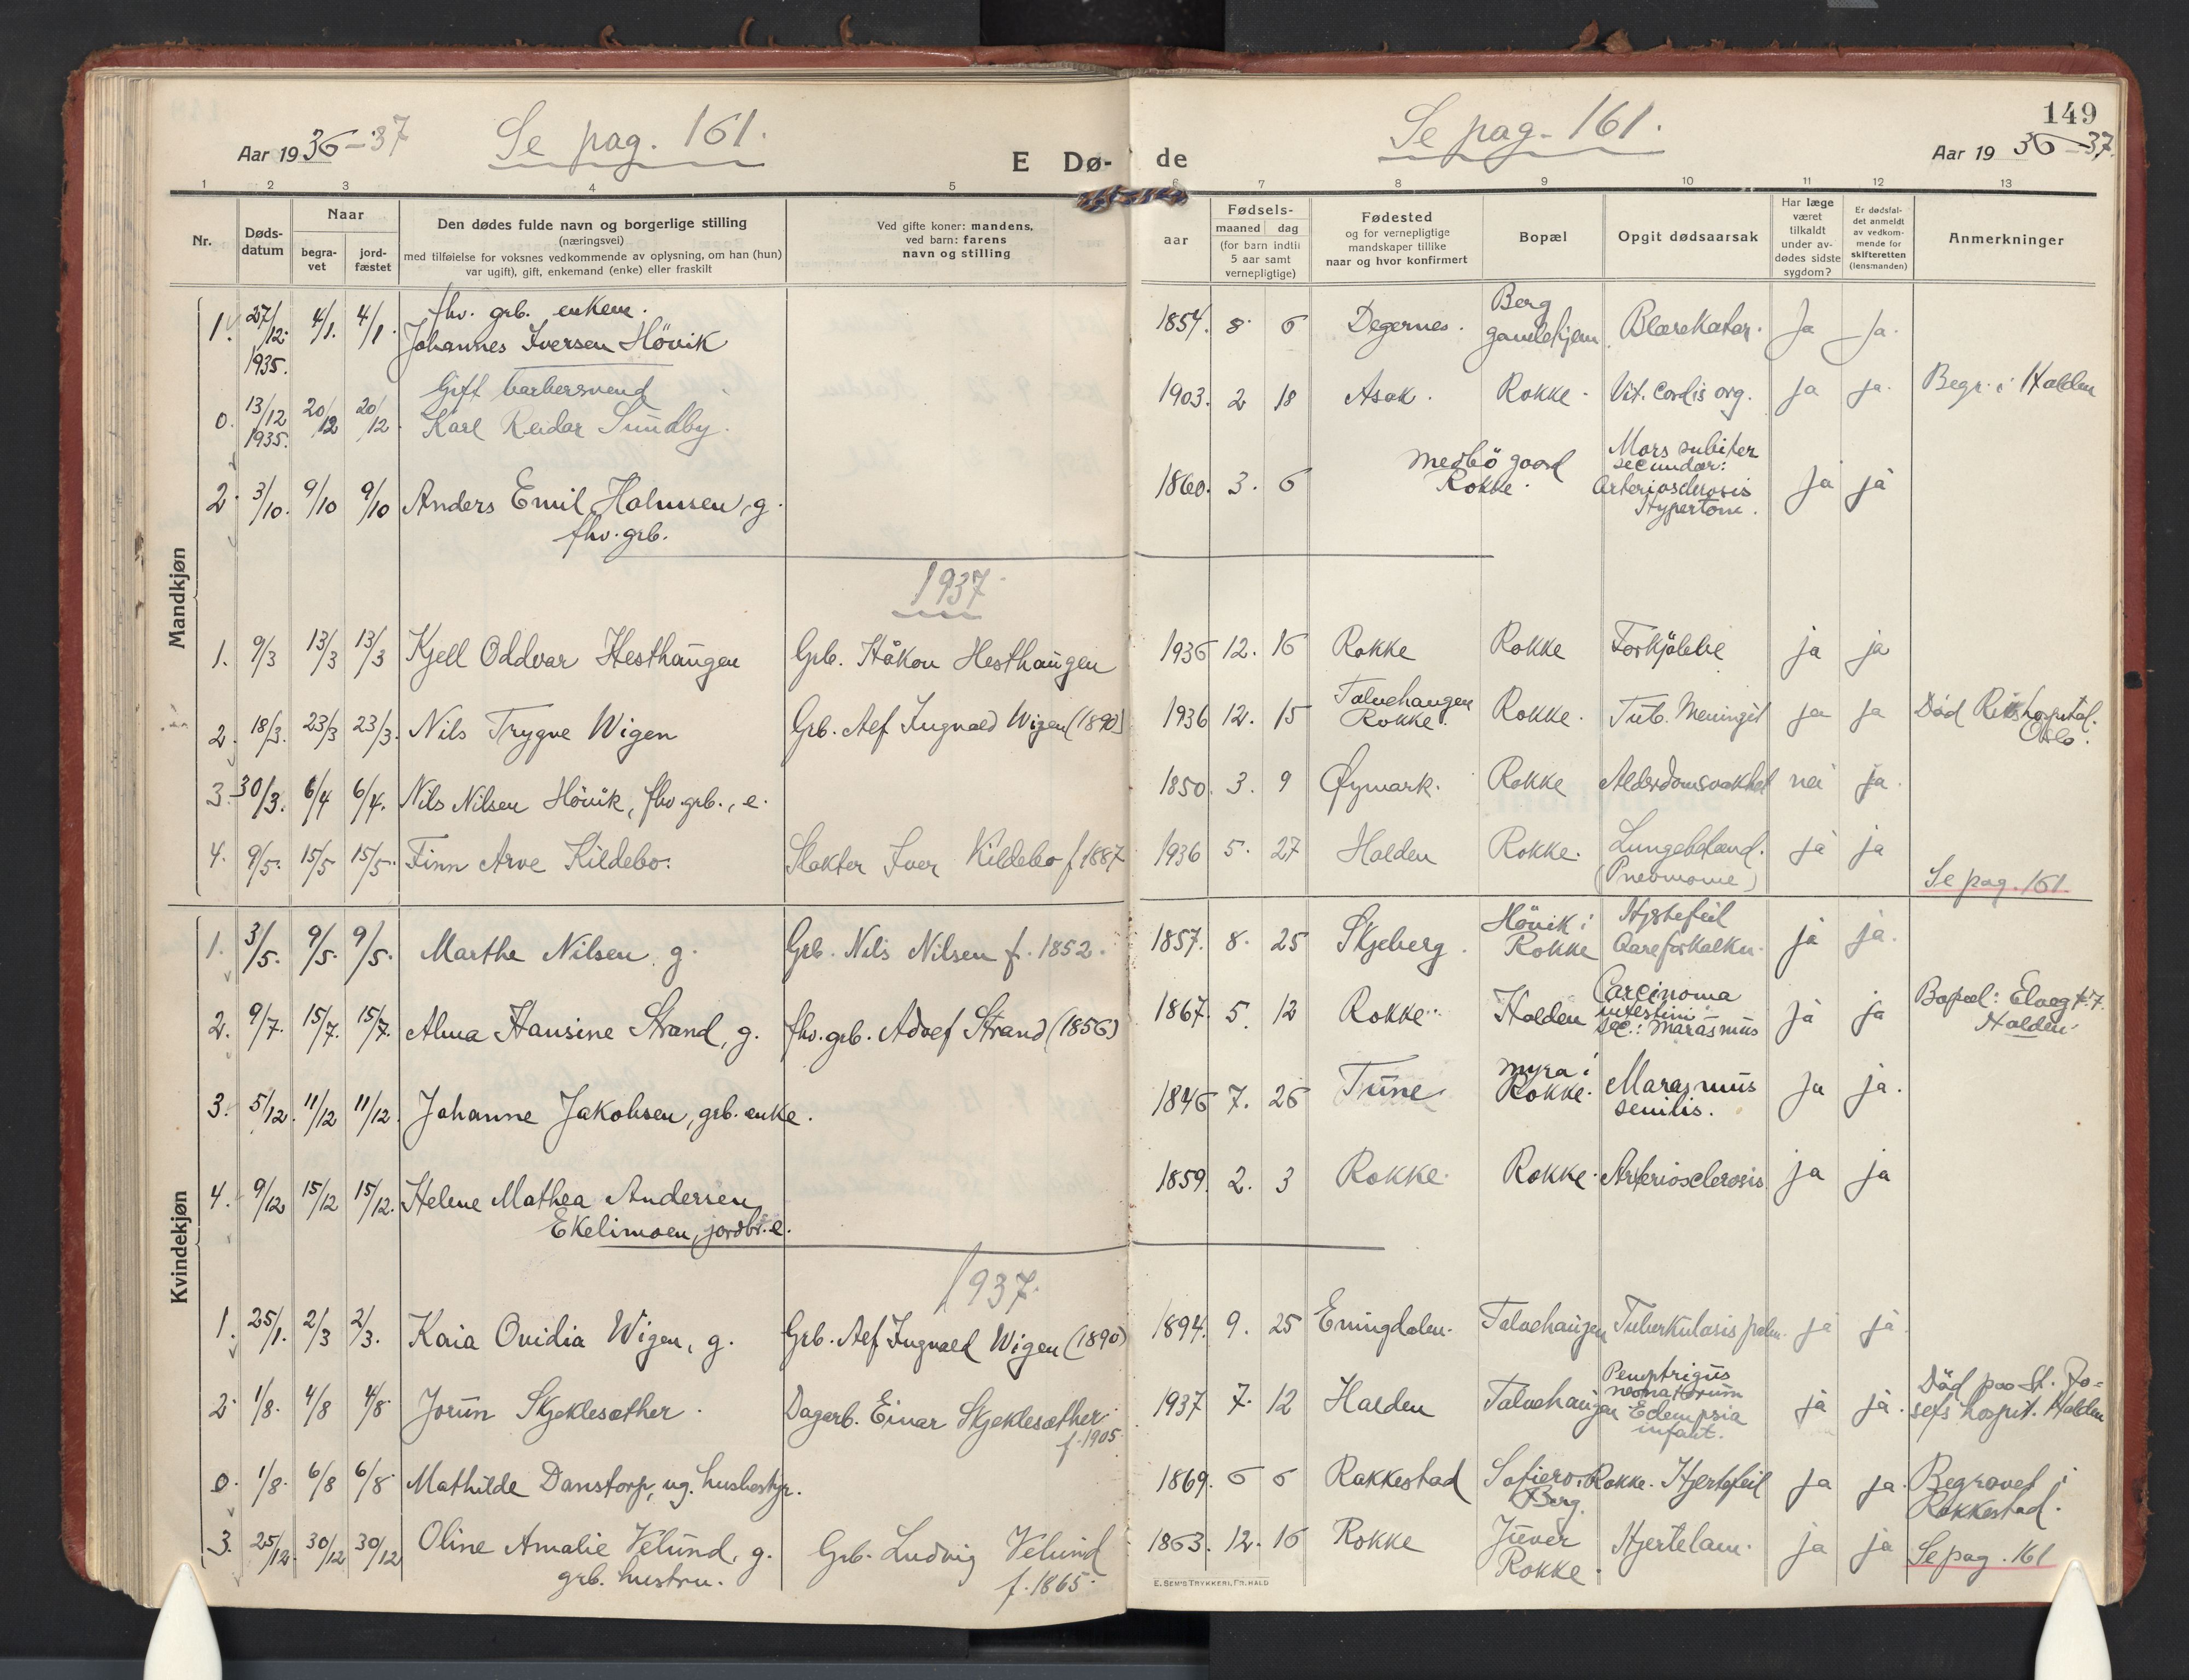 Aar 1936-37
Se pag. 161.
E Dø-
de
Se pag. 161.
149
Aar 1936-37.
1 2 3 4 5 6 7 8 9 10 11 12 13
Nr.
Døds-
datum
Naar
begra-
vet
jord-
fæstet
Den dødes fulde navn og borgerlige stilling
(næringsvei)
med tilføielse for voksnes vedkommende av oplysning, om han (hun)
var ugift), gift, enkemand (enke) eller fraskilt
Ved gifte koner: mandens,
ved barn: farens
navn og stilling
aar
Fødsels-
maaned dag
(for barn indtil
5 aar samt
vernepligtige)
Fødested
og for vernepligtige
mandskaper tillike
naar og hvor konfirmert
Bopæl
Opgit dødsaarsak
Har læge
været
tilkaldt
under av-
dødes sidste
sygdom?
Er dødsfal-
det anmeldt
av vedkom-
mende for
skifteretten
(lensmanden)
Anmerkninger
Mandkjøn
1. 27/12. 1935. 4/1. 4/1. fhv. grb. enkem.
Johannes Iversen Hövik
1854. 8. 6 Degernes. Berg
gamlehjem. Blærekatar. Ja Ja.
0. 13/12 1935. 20/12 20/12. Gift barbersvend
Karl Reidar Sundby.
1903. 2 18 Asak. Rokke. Vit. cordis org. ja ja. Begr. i Halden
2. 3/10. 9/10 9/10 Anders Emil Holmsen, g.
fhv. grb.
1860. 3. 6 Medbö gaard
Rokke. Mors subiter
secundær:
Arteriosclerosis
Hypertoni. Ja ja
1937.
1. 9/3 13/3 13/3 Kjell Oddvar Hesthaugen Grb. Håkon Hesthaugen
1936 12. 16 Rokke Rokke Forkjölelse ja ja
2. 18/3. 23/3 23/3. Nils Trygve Wigen Grb. Alf Ingvald Wigen (1890)
1936 12. 15 Talvehaugen
Rokke. Rokke. Tub. Meningit ja ja Död Rikshospital.
Oslo.
3. 30/3. 6/4 6/4. Nils Nilsen Hövik, fhv. grb., e.
1850. 3. 9 Øymark. Rokke Alderdomsvakhet nei ja.
4. 9/5. 15/5 15/5. Finn Arve Kildebo. Slakter Iver Kildebo f. 1887
1936 5. 27 Halden Rokke. Lungebetænd.
(Pneumonie) ja ja
Se pag. 161.
Kvindekjøn
1. 3/5. 9/5. 9/5. Marthe Nilsen g. Grb. Nils Nilsen f. 1852.
1857. 8. 25 Skjeberg. Hövik i
Rokke Hjertefeil
Aareforkalkn. ja ja.
2. 9/7. 15/7. 15/7. Alma Hansine Strand, g. fhv. grb. Adolf Strand (1856)
1867. 5. 12 Rokke. Halden Carcinoma
intestini
sec.: Marasmus ja ja Bopæl: Elveg. 
Halden.
3. 5/12. 11/12 11/12. Johanne Jakobsen, grb. enke.
1846 7. 26 Tune Myra i
Rokke. Marasmus
senilis. Ja ja.
4. 9/12 15/12 15/12. Helene Mathea Andersen
Ekelimoen, jordbr. e.
1859. 2. 3 Rokke. Rokke. Arteriosclerosis ja ja
1937.
1. 25/1. 2/3 2/3. Kaia Ovidia Wigen, g. Grb. Alf Ingvald Wigen (1890)
1894. 9. 25 Enningdalen. Talvehaugen Tuberkulosis pulm. ja ja
2. 1/8. 4/8 4/8 Jorun Skjeklesæther. Dagarb. Einar Skjeklesæther
f. 1905.
1937 7. 12 Halden Talvehaugen Pemptrigus
neonatorum
Eclempsia
infant. ja ja. Död paa St. Jo-
sefs hospit. Halden
0. 1/8. 6/8 6/8 Mathilde Danstorp, ug. husbestyr.
1869. 6 6 Rakkestad Sofiero i Rokke.
Berg. Hjertefeil ja ja. Begravet i
Rakkestad.
3. 25/12. 30/12 30/12 Oline Amalie Velund, g.
grb. hustru. Grb. Ludvig Velund
f. 1865.
1863. 12. 16 Rokke Juver
Rokke. Hjertelam. ja ja Se pag. 161
E. SEM'S TRYKKERI, FR.HALD